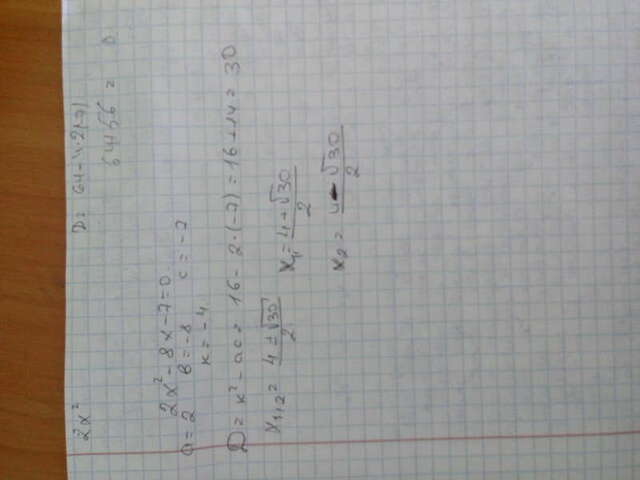 2x²
D = 64 - 4·2(-7)
64+56 =
2x² - 8x - 7 = 0
a = 2 в = -8 c = -7
к = -4
D = к² - ac = 16 - 2·(-7) = 16 + 14 = 30
x₁,₂ = 4 ± √30 / 2 x₁ = 4 + √30 / 2
x₂ = 4 - √30 / 2